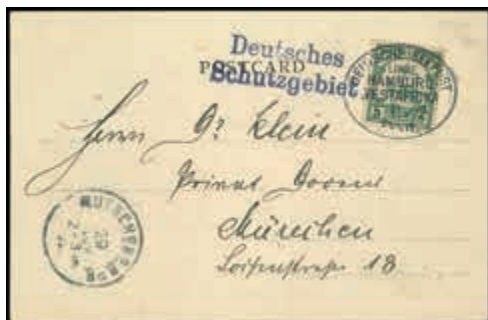 Deutsches
POSTCARD
Schutzgebiet
DEUTSCHE SEEPOST
LINIE
HAMBURG
WESTAFRIKA
Herrn Dr Klein
Privat Docent
München
Loisenstrasse 18
MUENCHEN